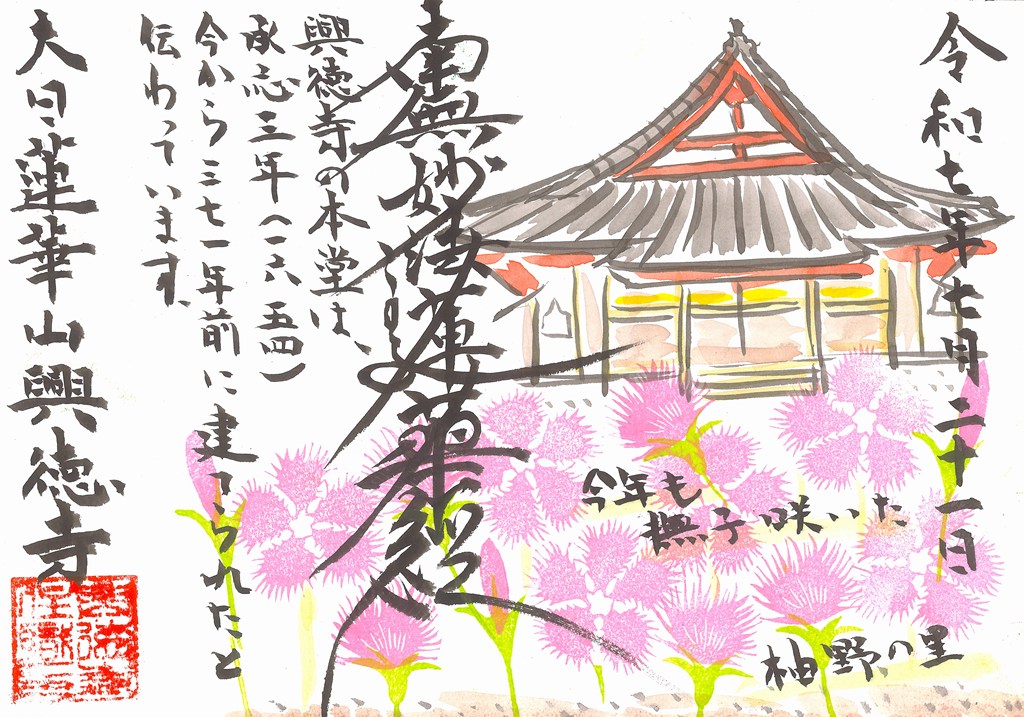 令和七年七月二十一日
今年も
撫子咲いた
柚野の里
南無妙法蓮華経
興徳寺の本堂は、
承応三年(一六五四)
今から三七一年前に建てられたと
伝わっています。
大日蓮華山興徳寺